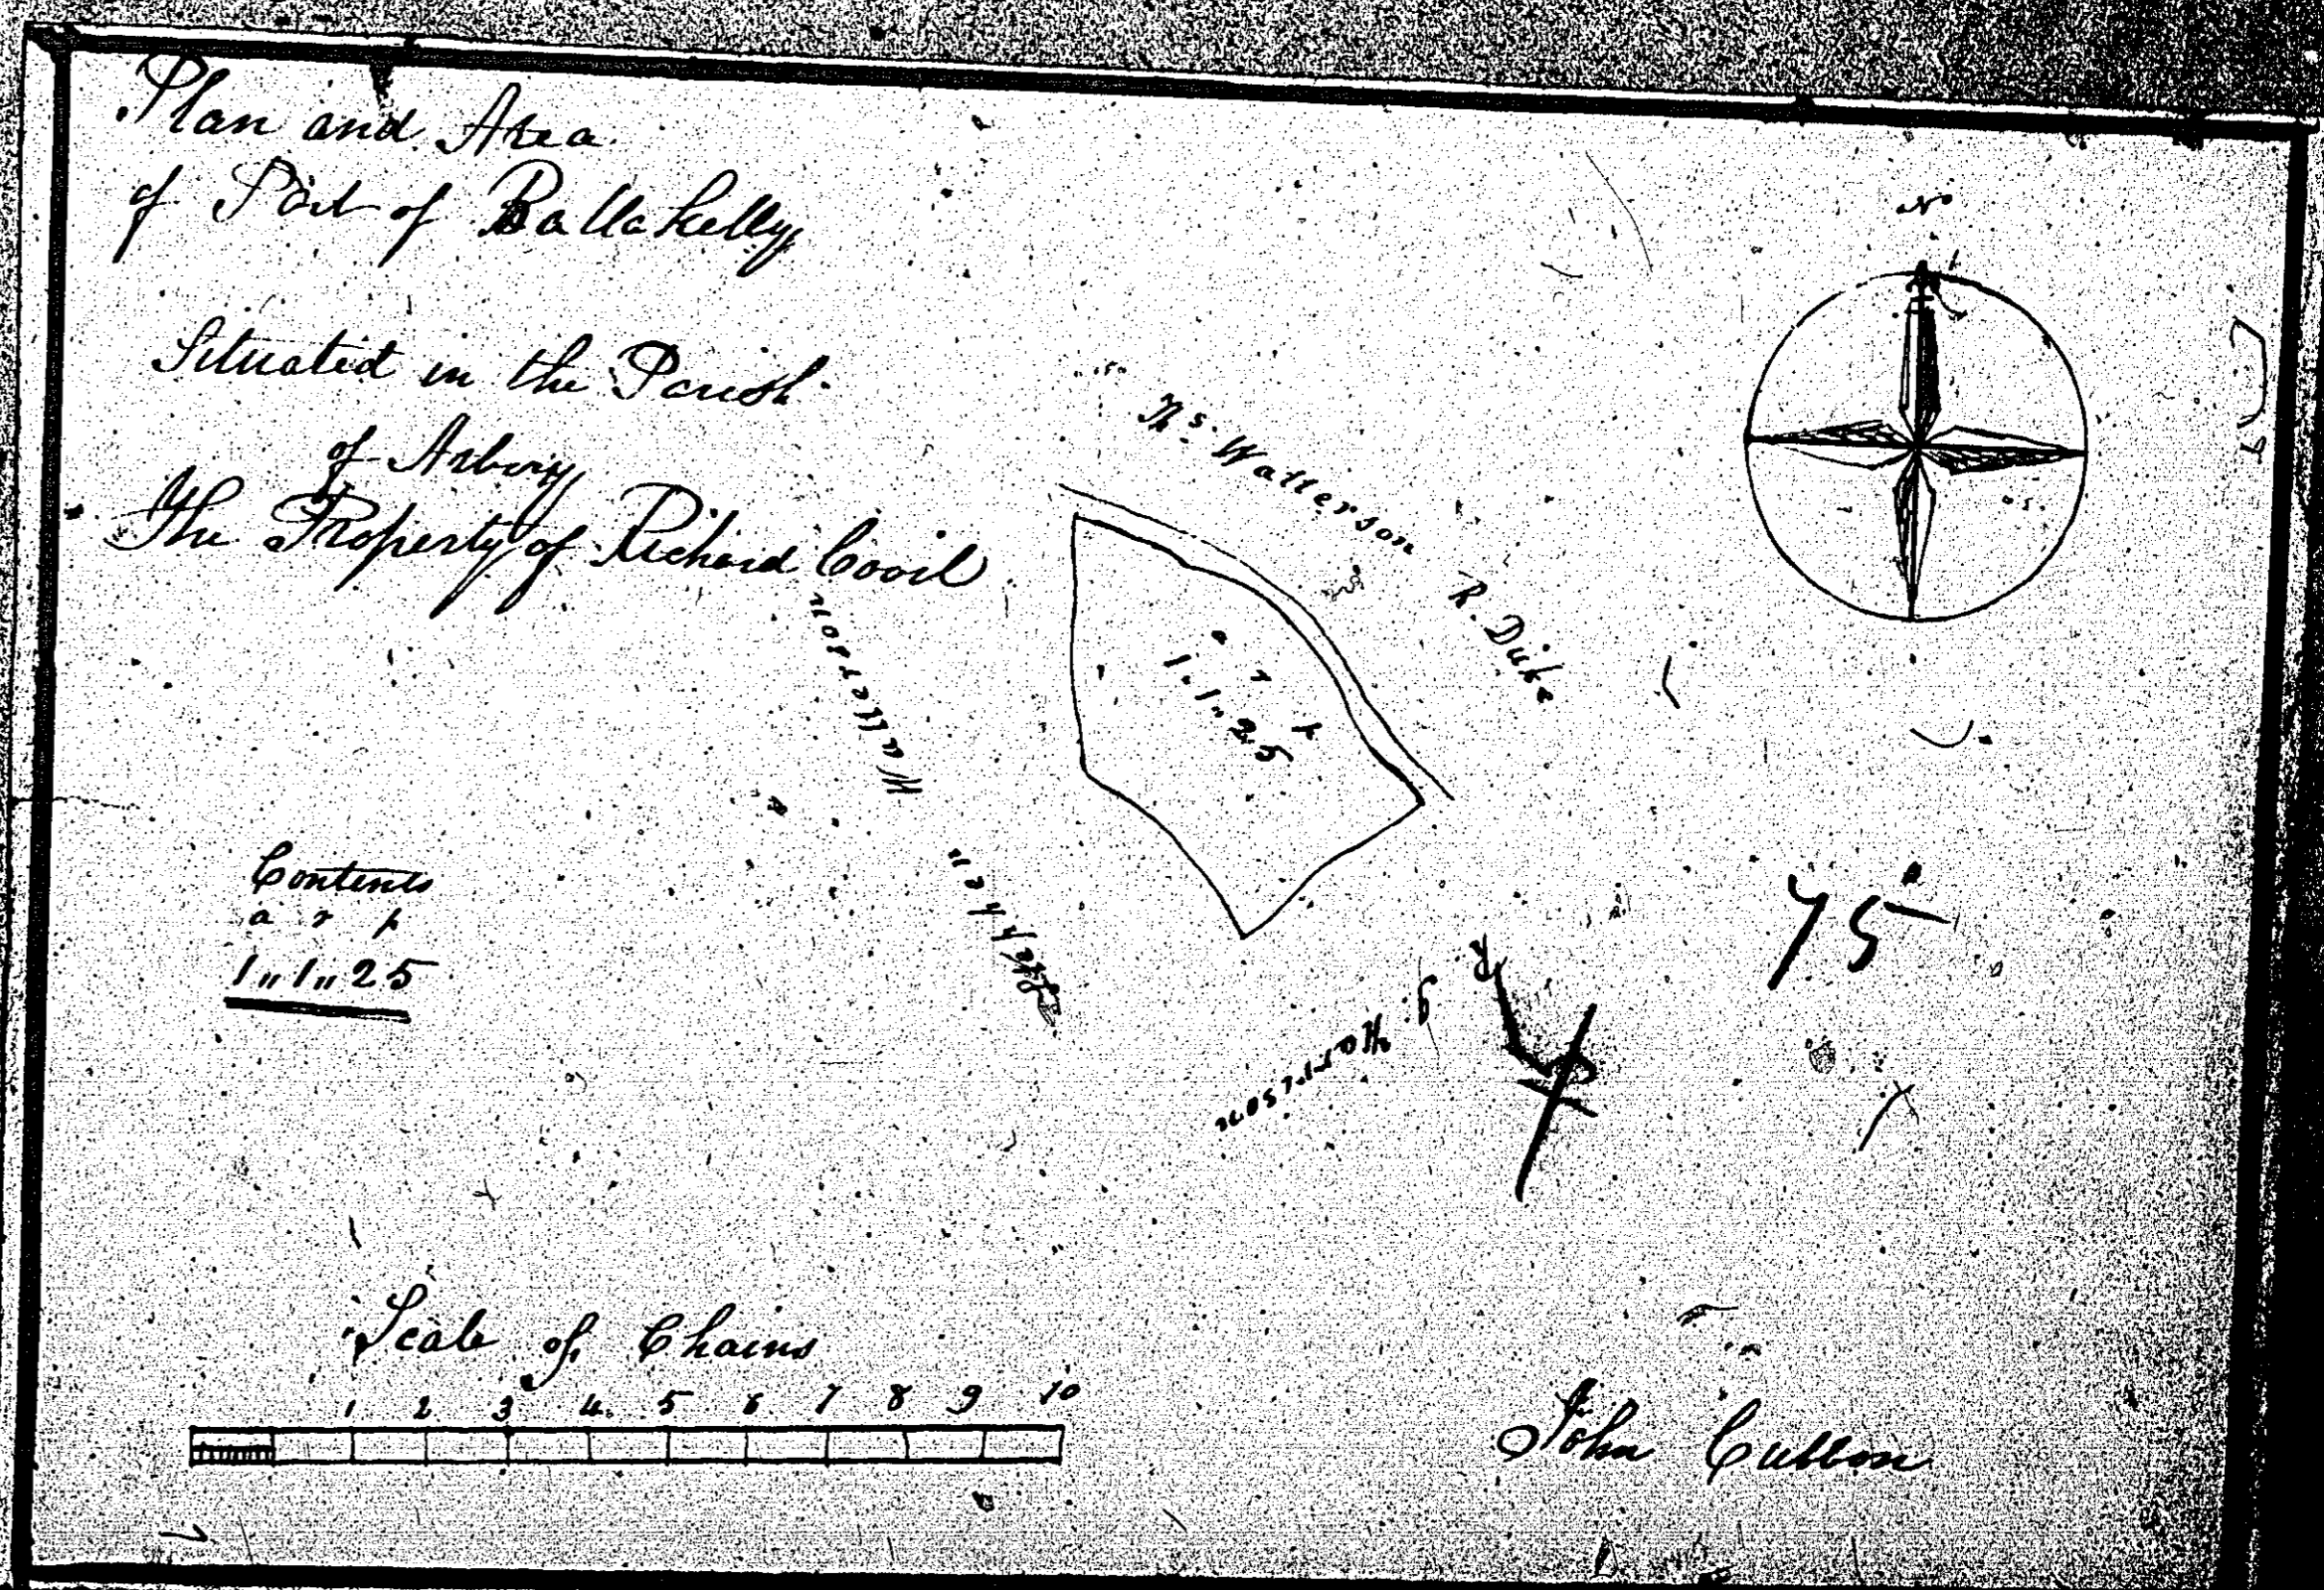 Plan and Area
of Part of Ballakelly
Situated in the Parish
of Arbory
The Property of Richard Cooil
N
Ths. Watterson
R. Duke
a r p
1.1.25
Watterson
Stephen
R. G. Morrison
Contents
a r p
1"1"25
75
Scale of Chains
1 2 3 4 5 6 7 8 9 10
John Cubbon